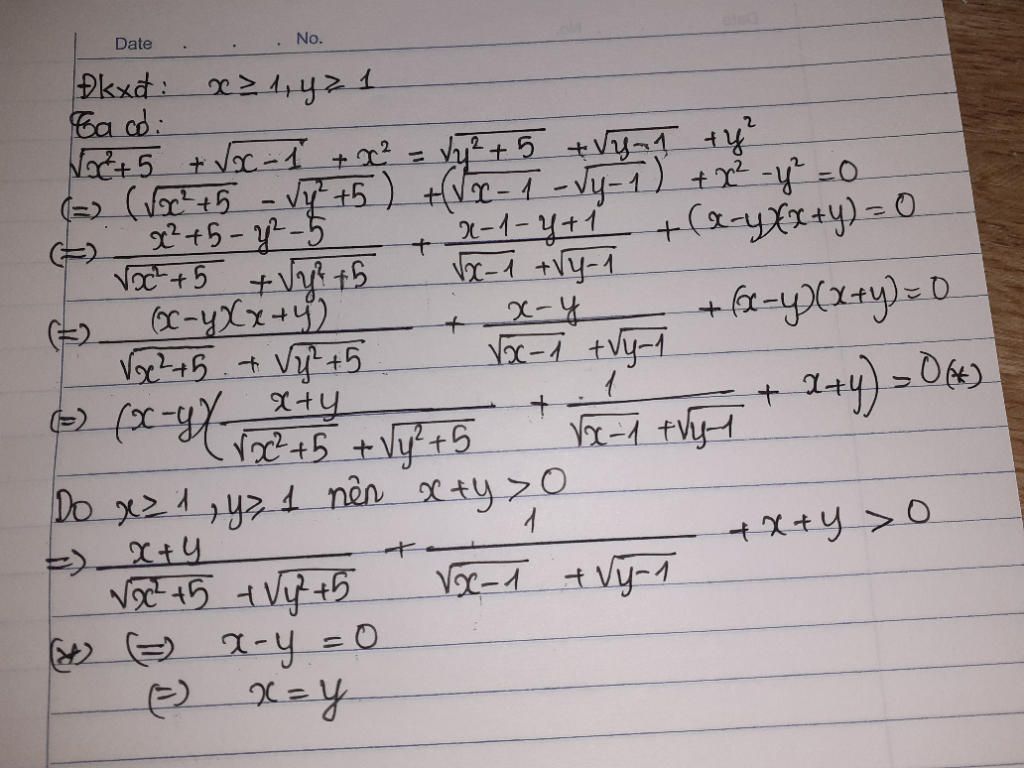 Date . . . No.
Đkxđ: x ≥ 1, y ≥ 1
Ta có:
√(x²+5) + √(x-1) + x² = √(y²+5) + √(y-1) + y²
(=) (√(x²+5) - √(y²+5)) + (√(x-1) - √(y-1)) + x² - y² = 0
(=) (x²+5-y²-5)/(√(x²+5) + √(y²+5)) + (x-1-y+1)/(√(x-1) + √(y-1)) + (x-y)(x+y) = 0
(=) ((x-y)(x+y))/(√(x²+5) + √(y²+5)) + (x-y)/(√(x-1) + √(y-1)) + (x-y)(x+y) = 0
(=) (x-y)((x+y)/(√(x²+5) + √(y²+5)) + 1/(√(x-1) + √(y-1)) + x+y) = 0 (*)
Do x ≥ 1, y ≥ 1 nên x+y > 0
=) (x+y)/(√(x²+5) + √(y²+5)) + 1/(√(x-1) + √(y-1)) + x+y > 0
(*) (=) x-y = 0
(=) x = y